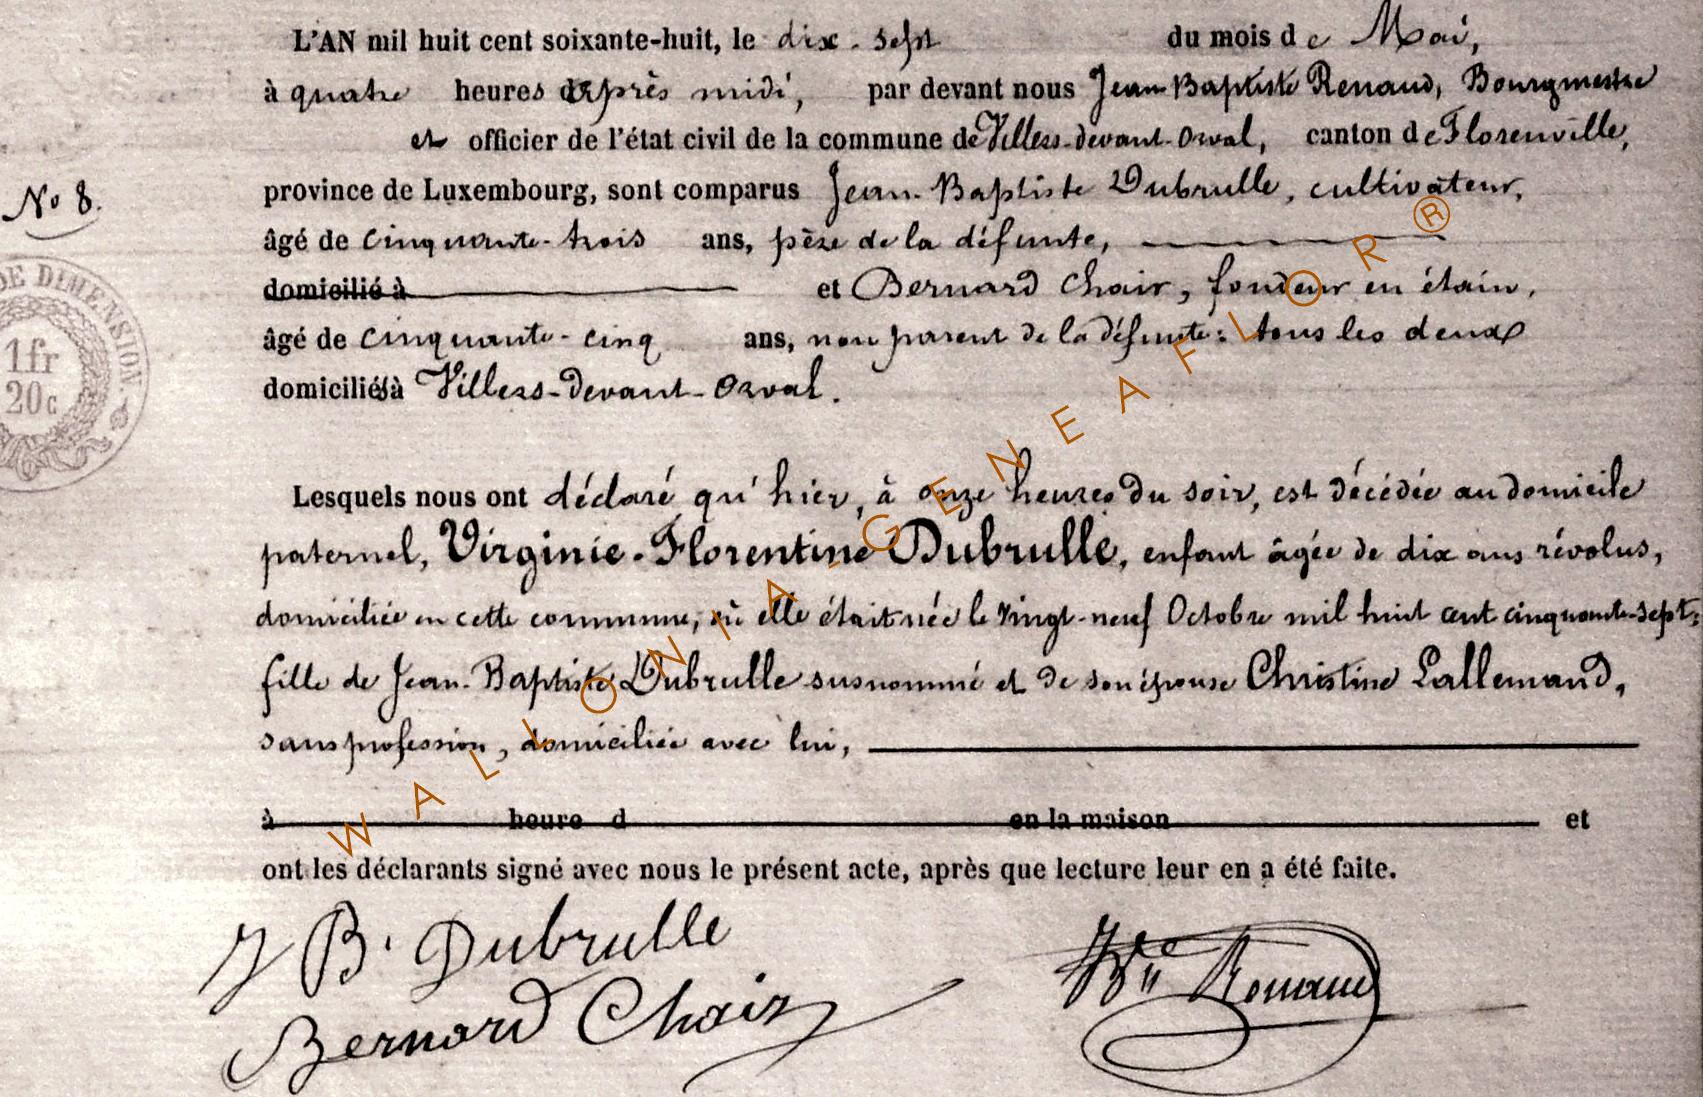 L'AN mil huit cent soixante-huit, le dix-sept du mois de Mai,
à quatre heures d'après midi, par devant nous Jean Baptiste Renaud, Bourgmestre
et officier de l'état civil de la commune de Villers-devant-Orval, canton de Florenville,
province de Luxembourg, sont comparus Jean-Baptiste Dubrulle, cultivateur,
No 8.
âgé de cinquante-trois ans, père de la défunte,
domicilié à et Bernard Chair, fondeur en étain,
âgé de cinquante-cinq ans, non parent de la défunte: tous les deux
domiciliés à Villers-devant-Orval.
DE DIMENSION.
1fr
20c
Lesquels nous ont déclaré qu'hier, à onze heures du soir, est décédée au domicile
paternel, Virginie-Florentine Dubrulle, enfant âgée de dix ans révolus,
domiciliée en cette commune, où elle était née le vingt-neuf Octobre mil huit cent cinquante-sept,
fille de Jean-Baptiste Dubrulle susnommé et de son épouse Christine Lallemand,
sans profession, domiciliée avec lui,
à heure d en la maison et
ont les déclarants signé avec nous le présent acte, après que lecture leur en a été faite.
J B. Dubrulle
Bernard Chair
Renaud
WALLONIA-GENEAFLOR®